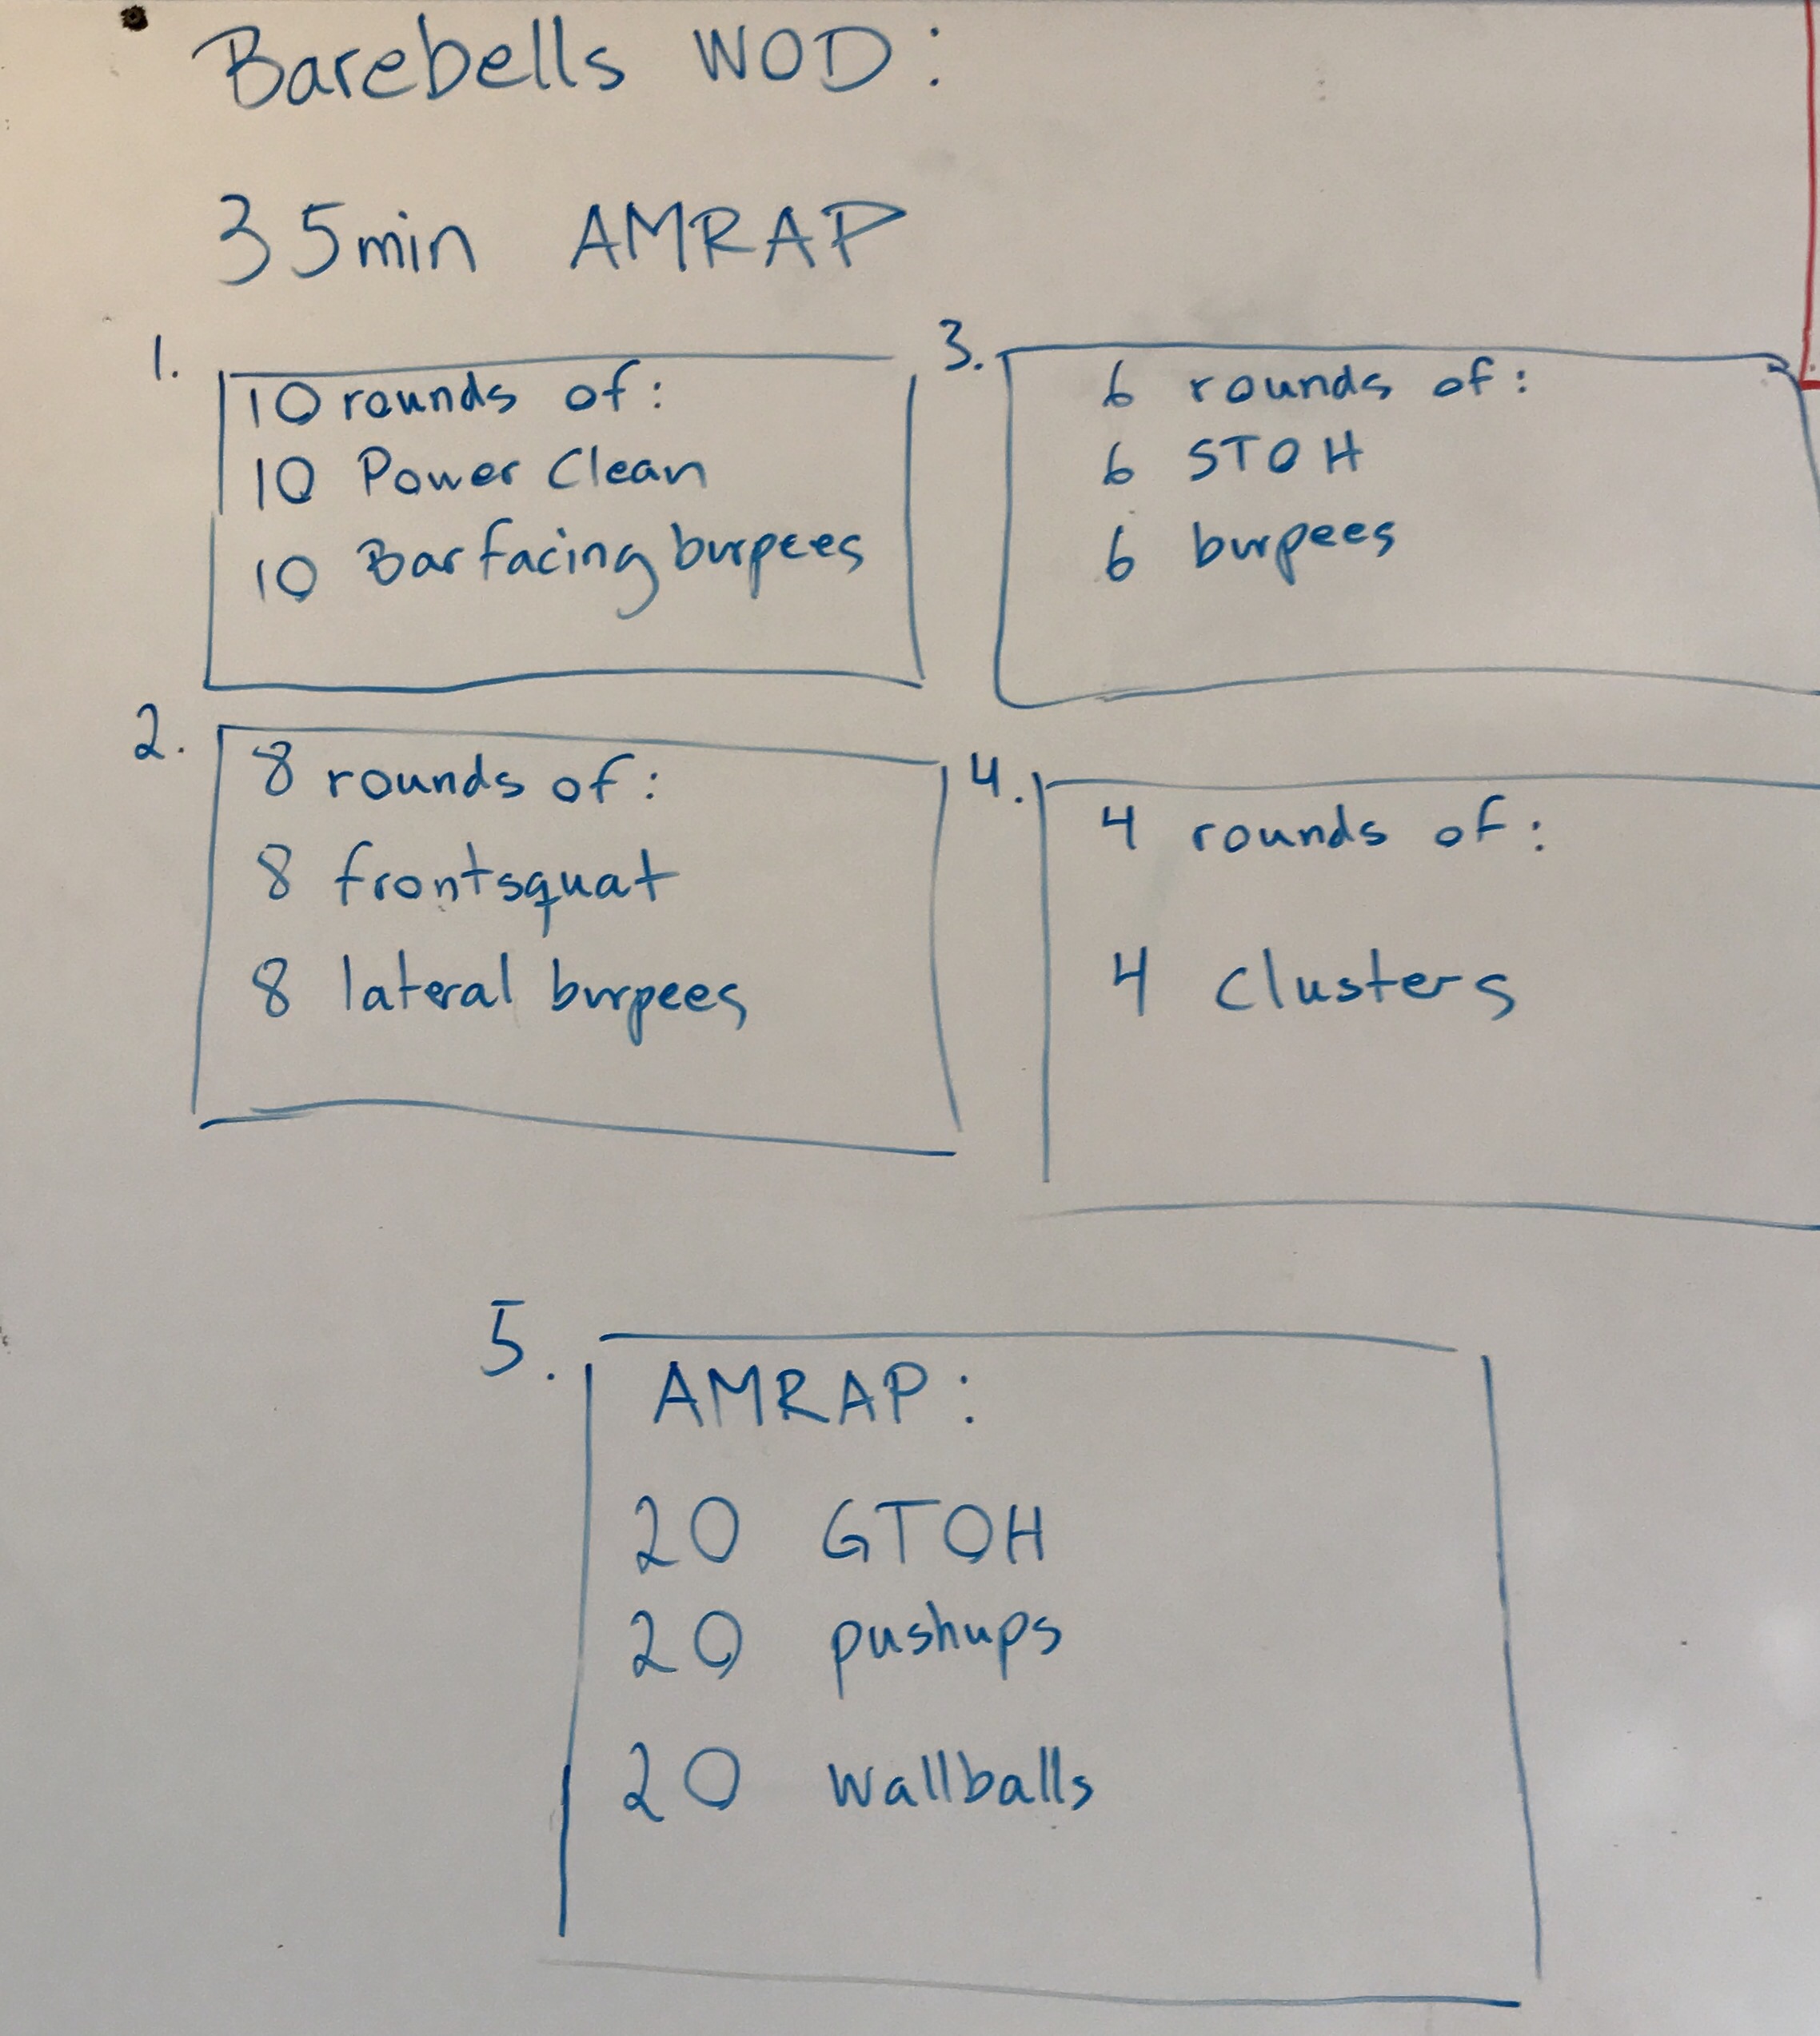 Barebells WOD:
35min AMRAP
1.
10 rounds of:
10 Power Clean
10 Bar facing burpees
2.
8 rounds of:
8 frontsquat
8 lateral burpees
3.
6 rounds of:
6 STOH
6 burpees
4.
4 rounds of:
4 clusters
5.
AMRAP:
20 GTOH
20 pushups
20 wallballs